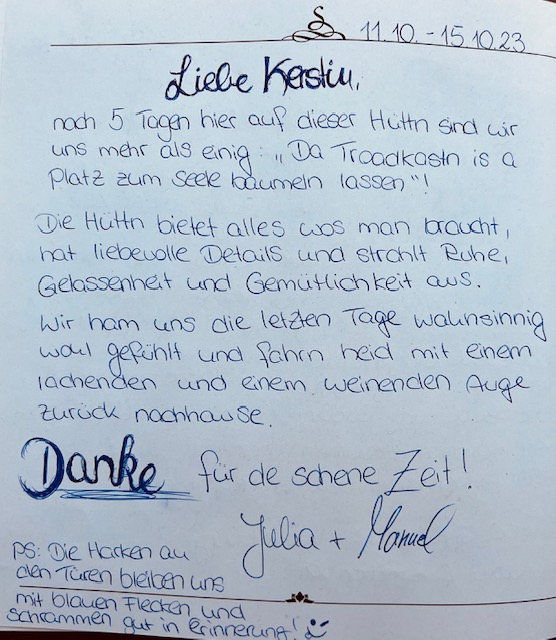 11.10. - 15.10.23
Liebe Kerstin,
noch 5 Tagen hier auf dieser Hüttn sind wir
uns mehr als einig: „Da Troadkastn is a
Platz zum Seele baumeln lassen"!
Die Hüttn bietet alles wos man braucht,
hat liebevolle Details und strohlt Ruhe,
Gelassenheit und Gemütlichkeit aus.
Wir ham uns die letzten Tage wahnsinnig
wohl gefühlt und fahrn heid mit einem
lachenden und einem weinenden Auge
zurück nochhause.
Danke für de schene Zeit!
Julia + Manuel
PS: Die Harken an
den Türen bleiben uns
mit blauen Flecken und
Schrammen gut in Erinnerung!